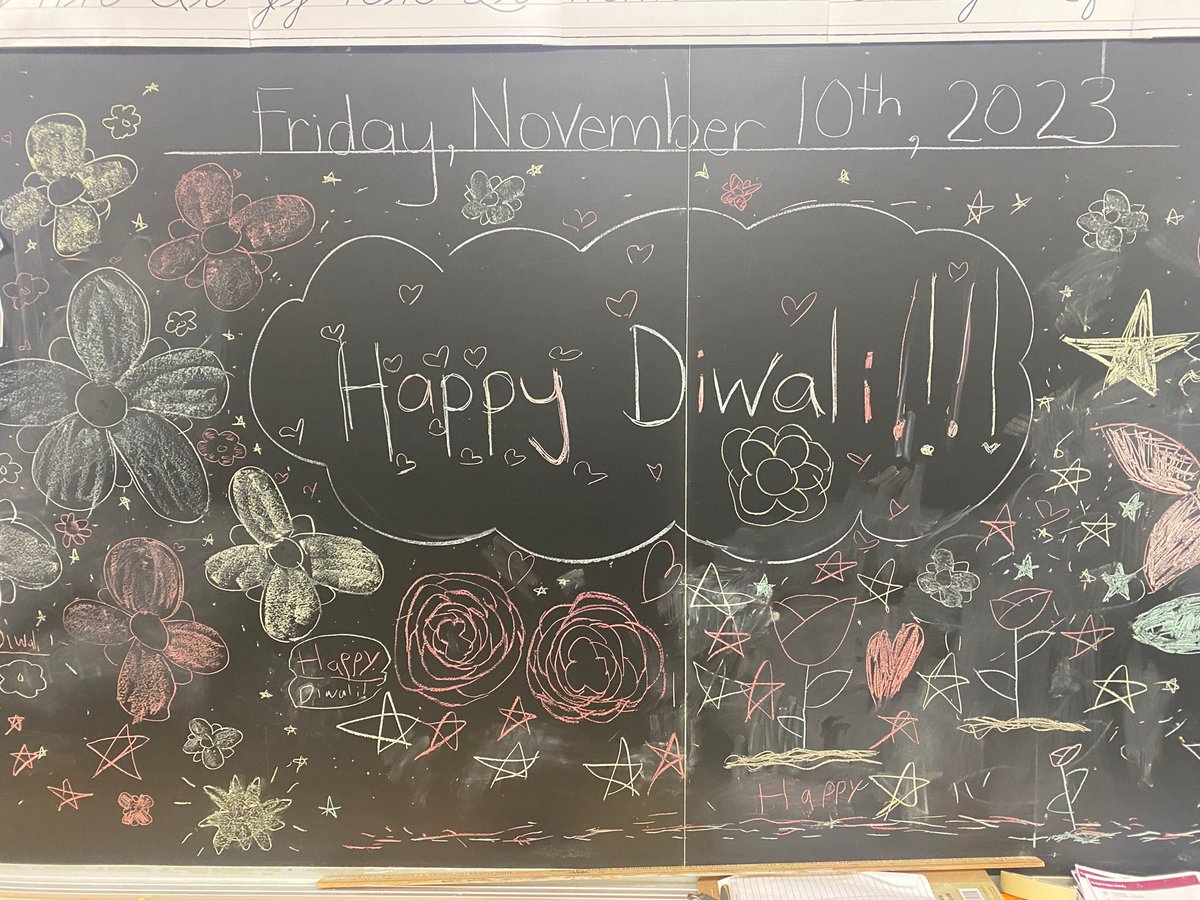 Friday, November 10th, 2023
Happy Diwali!!!!
Diwali
Happy
Diwali!
Happy